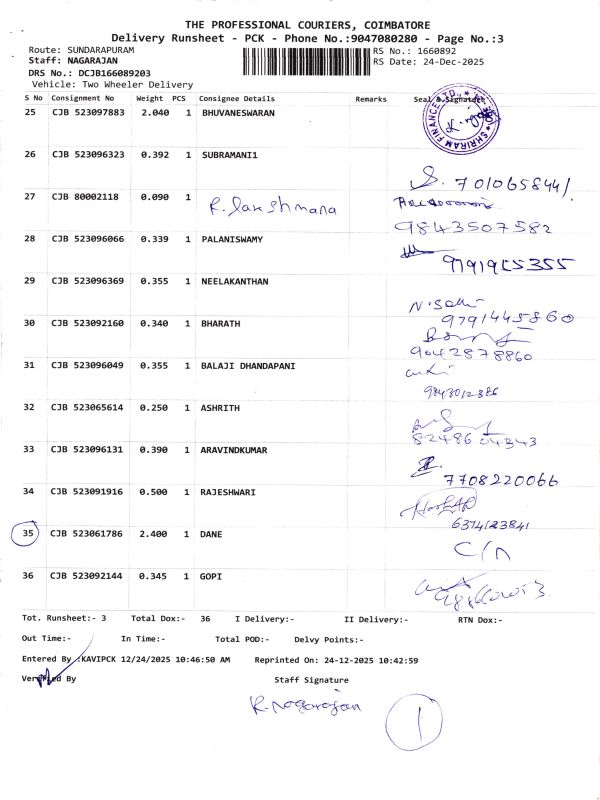 THE PROFESSIONAL COURIERS, COIMBATORE
Delivery Runsheet - PCK - Phone No.:9047080280 - Page No.:3
Route: SUNDARAPURAM RS No.: 1660892
Staff: NAGARAJAN RS Date: 24-Dec-2025
DRS No.: DCJB166089203
Vehicle: Two Wheeler Delivery
S No Consignment No Weight PCS Consignee Details Remarks Seal & Signature
25 CJB 523097883 2.040 1 BHUVANESWARAN
SHRIRAM FINANCE LTD.,
26 CJB 523096323 0.392 1 SUBRAMANI1
S. 701065844/.
27 CJB 80002118 0.090 1 R. lakshmana
9843507582
28 CJB 523096066 0.339 1 PALANISWAMY
9791965355
29 CJB 523096369 0.355 1 NEELAKANTHAN
9791445860
30 CJB 523092160 0.340 1 BHARATH
9042878860
31 CJB 523096049 0.355 1 BALAJI DHANDAPANI
9843012386
32 CJB 523065614 0.250 1 ASHRITH
8248604343
33 CJB 523096131 0.390 1 ARAVINDKUMAR
7708220066
34 CJB 523091916 0.500 1 RAJESHWARI
6374123841
35 CJB 523061786 2.400 1 DANE
C/n
36 CJB 523092144 0.345 1 GOPI
Tot. Runsheet:- 3 Total Dox:- 36 I Delivery:- II Delivery:- RTN Dox:-
Out Time:- In Time:- Total POD:- Delvy Points:-
Entered By :KAVIPCK 12/24/2025 10:46:50 AM Reprinted On: 24-12-2025 10:42:59
Verified By Staff Signature
R. Nagarajan
1